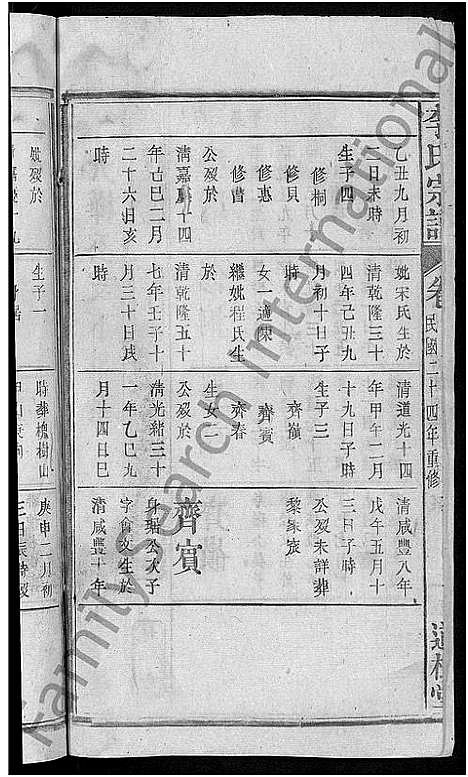 李氏宗譜
卷
民國二十四年重修
乙丑九月初
二日未時
生子四
修桐
修貝
修惠
修曹
公歿於
清嘉慶十四
年己巳二月
二十六日亥
時
妣宋氏生於
清乾隆三十
四年己丑九
月初十日子
時
女一適陳
繼妣程氏生
於
清乾隆五十
七年壬子十
月三十日戌
時
清道光十四
年甲午二月
十九日子時
生子三
齊嶺
齊賓
齊春
生女二
公歿於
清光緒三十
一年乙巳九
月十四日巳
清咸豐八年
戊午五月十
三日子時
公歿未詳葬
黎家宸
齊賓
身瑞公次子
字
生於
清咸豐十年
妣歿於
生子一
時葬槐樹山
庚申二月初
FamilySearch International